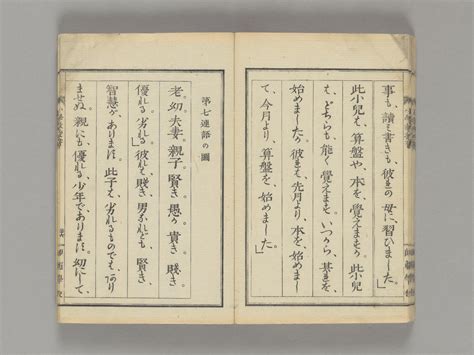 事も、讀ミ書きも、彼等の 母に、習ひました。」
此小兒は、算盤や、本を、覺えますか 此小兒
は、どちらも、能く 覺えます いつから、其等を、
始めましたか 彼は、先月より、本を、始めまし
て、今月より、算盤を、始めました。」
第七連語の圖
老 幼。夫妻。親子。賢き。愚か 貴き 賤き
優れる。劣れる。」彼れは賤き、男なれども、賢き、
智慧が、ありまする。此子は、劣れるものでも、あり
ませぬ。親にも、優れる、少年であります。幼にして、